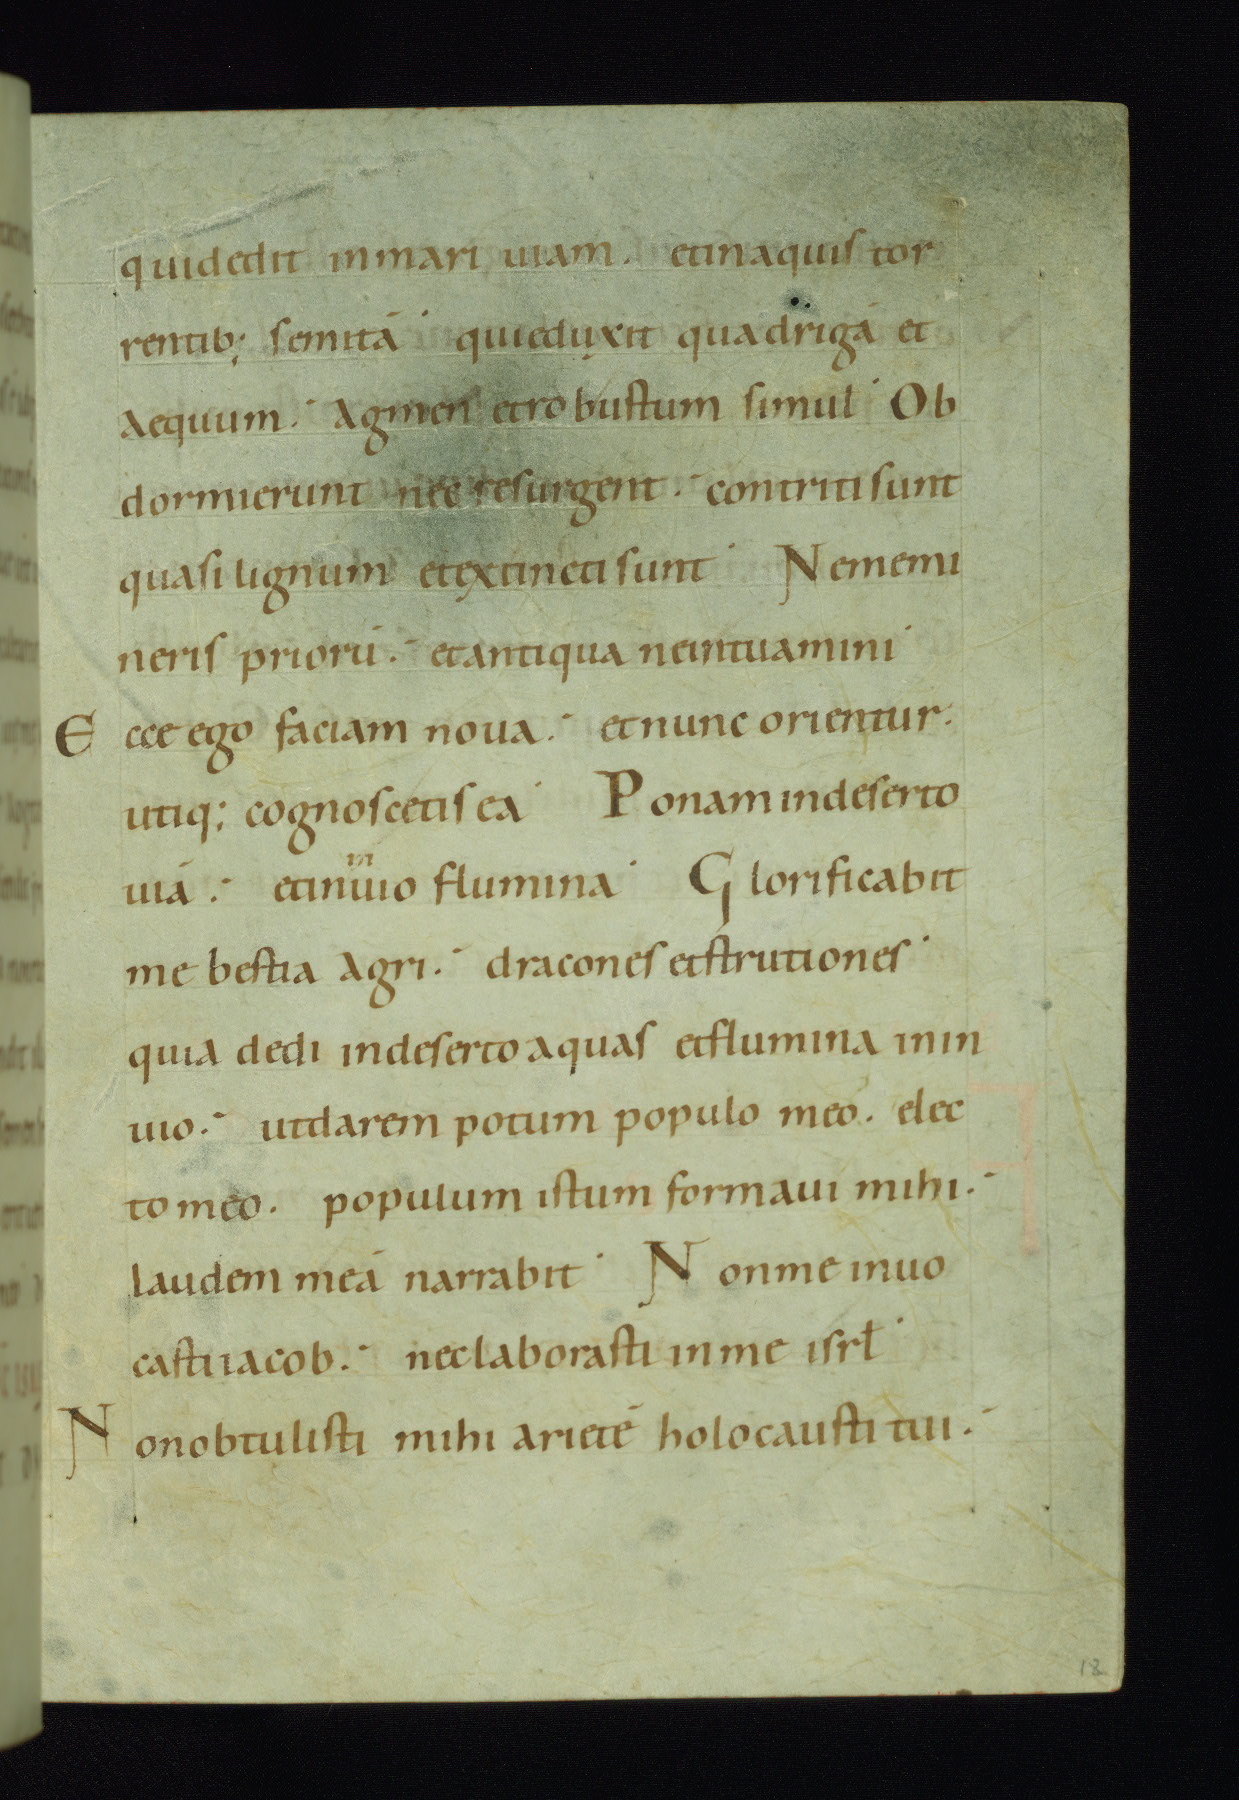 quidedit inmari uiam. etinaquis tor
rentib; semitā quieduxit quadrigā et
aequum. agmen etrobustum simul Ob
dormierunt nec resurgent. contriti sunt
quasi lignum etextincti sunt Nememi
neris priorū. etantiqua neintuamini
Ecce ego faciam noua. etnunc orientur.
utiq; cognoscetis ea Ponam indeserto
uiā. etininuio flumina Glorificabit
me bestia agri. dracones etstrutiones
quia dedi indeserto aquas etflumina inin
uio. utdarem potum populo meo. elec
to meo. populum istum formaui mihi.
laudem meā narrabit Non me inuo
casti iacob. neclaborasti inme isrł
Non obtulisti mihi arietē holocausti tui.
18